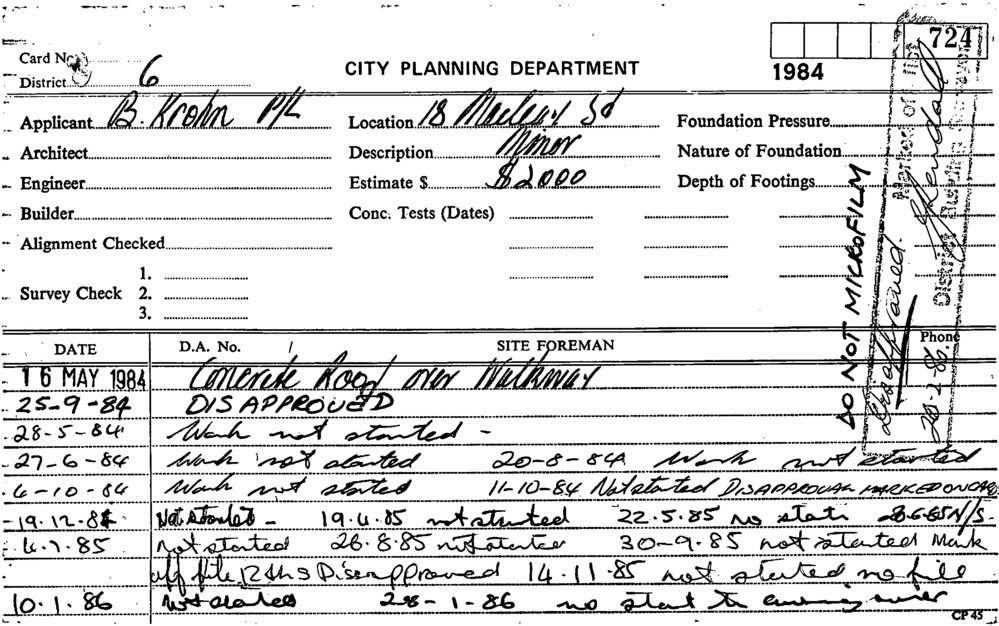 724
1984
Card No.
District 6
CITY PLANNING DEPARTMENT
Applicant B. Krohn P/L Location 18 Macleay St Foundation Pressure
Architect Description Minor Nature of Foundation
Engineer Estimate $ $2000 Depth of Footings
Builder Conc. Tests (Dates)
Alignment Checked
1.
Survey Check 2.
3.
DO NOT MICROFILM
Disapproved.
Marked off
District Building Surveyor
28.2.86.
DATE D.A. No. / SITE FOREMAN Phone
16 MAY 1984 Concrete Roof over Walkway
25-9-84 DISAPPROVED
28-5-84 Work not started -
27-6-84 Work not started 20-8-84 Work not started
4-10-84 Work not started 11-10-84 Not started DISAPPROVAL MARKED ON CARD
19.12.84 Not started - 19.4.85 not started 22.5.85 no start 28.6.85 N/S.
4.7.85 not started 26.8.85 not started 30-9-85 not started Mark
off file Disapproved 14.11.85 not started no file
10.1.86 not started 28-1-86 no start to
CP 45